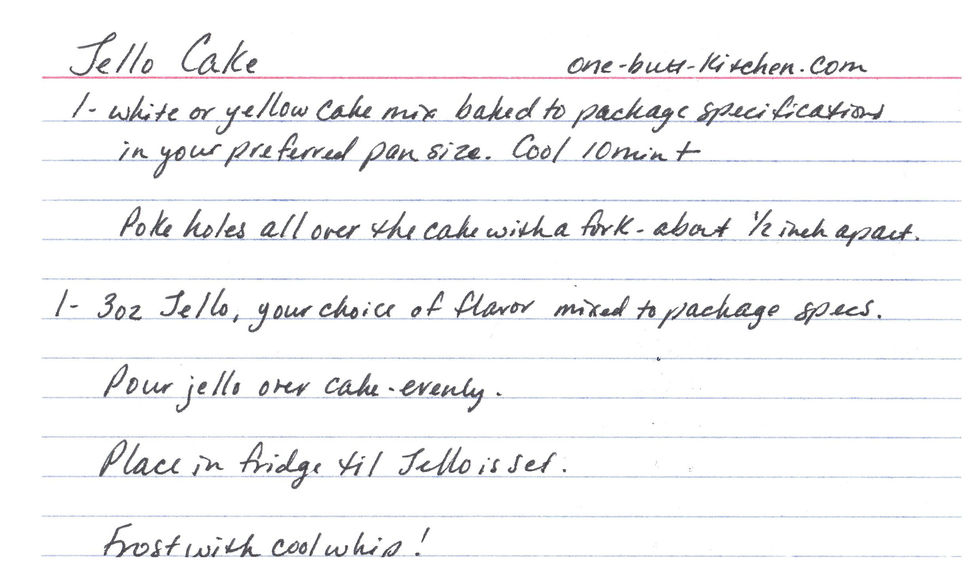 Jello Cake one-butt-kitchen.com
1- white or yellow cake mix baked to package specifications
in your preferred pan size. Cool 10 min +
Poke holes all over the cake with a fork - about 1/2 inch apart.
1- 3oz Jello, your choice of flavor mixed to package specs.
Pour jello over cake - evenly.
Place in fridge til Jello is set.
Frost with cool whip!